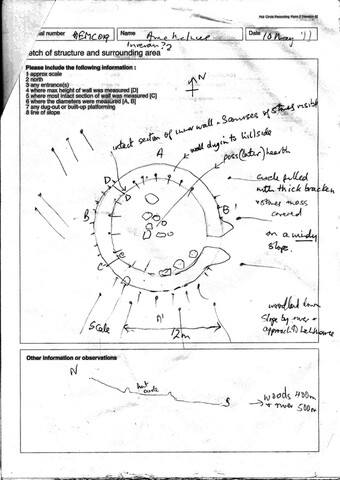 Hut Circle Recording Form 2 (Version 6)
ial number
Name
Date
etch of structure and surrounding area
Please include the following information :
1 approx scale
2 north
3 any entrance(s)
4 where max height of wall was measured [D]
5 where most intact section of wall was measured [C]
6 where the diameters were measured [A, B]
7 any dug-out or built-up platforming
8 line of slope
N
intact section of inner wall - 3 courses of stones visible
wall dug into hillside
A
poss (later) hearth
circle filled
with thick bracken
+ stones moss
covered
D
D
B
B'
on a windy
slope.
C
woodland down
slope by river +
Scale
A'
12m
Other information or observations
N
hut
circle
S
woods 400m
+ river 500m